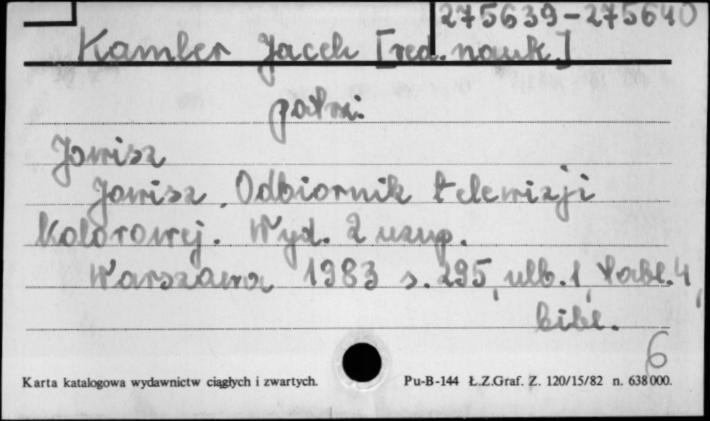 275639-275640
Kamler Jacek [red. nauk.]
patrz:
Jowisz
Jowisz. Odbiornik telewizji
kolorowej. Wyd. 2 uzup.
Warszawa 1983 s. 295, ulb. 1, tabl. 4,
bibl.
6
Karta katalogowa wydawnictw ciągłych i zwartych. Pu-B-144 Ł.Z.Graf. Z. 120/15/82 n. 638000.